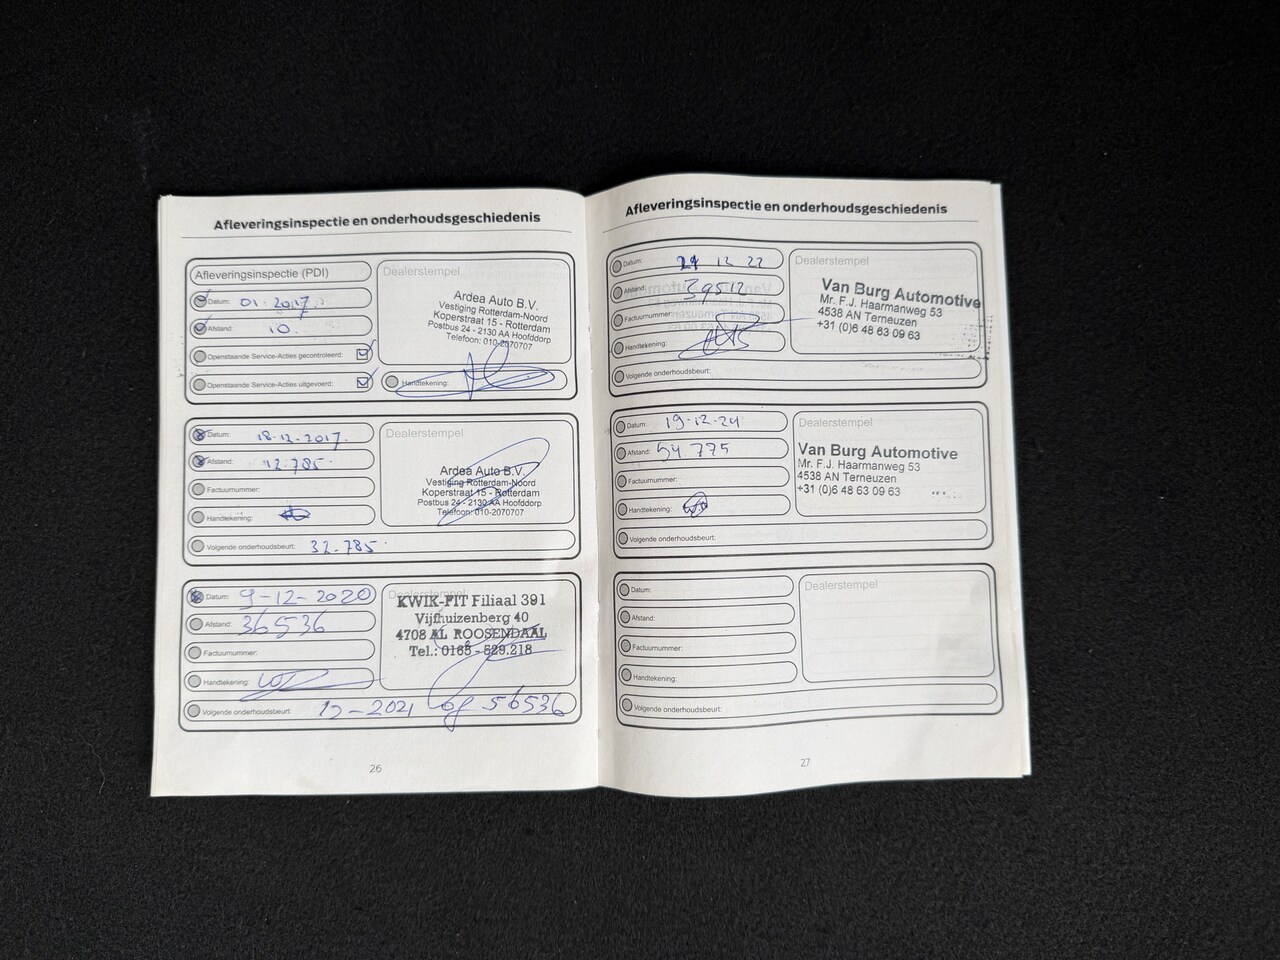 Afleveringsinspectie en onderhoudsgeschiedenis
Afleveringsinspectie (PDI)
Datum: 01-2017
Afstand: 10.
Openstaande Service-Acties gecontroleerd:
Openstaande Service-Acties uitgevoerd:
Dealerstempel
Ardea Auto B.V.
Vestiging Rotterdam-Noord
Koperstraat 15 - Rotterdam
Postbus 24 - 2130 AA Hoofddorp
Telefoon: 010-2070707
Handtekening:
Datum: 18-12-2017.
Afstand: 12.785.
Factuurnummer:
Handtekening:
Volgende onderhoudsbeurt: 32.785.
Dealerstempel
Ardea Auto B.V.
Vestiging Rotterdam-Noord
Koperstraat 15 - Rotterdam
Postbus 24 - 2130 AA Hoofddorp
Telefoon: 010-2070707
Datum: 9-12-2020
Afstand: 36536
Factuurnummer:
Handtekening:
Volgende onderhoudsbeurt: 12-2021 of 56536
Dealerstempel
KWIK-FIT Filiaal 391
Vijfhuizenberg 40
4708 AL ROOSENDAAL
Tel.: 0165 - 529.218
26
Afleveringsinspectie en onderhoudsgeschiedenis
Datum: 12 22
Afstand: 39512
Factuurnummer:
Handtekening:
Volgende onderhoudsbeurt:
Dealerstempel
Van Burg Automotive
Mr. F.J. Haarmanweg 53
4538 AN Terneuzen
+31 (0)6 48 63 09 63
Datum: 19-12-24
Afstand: 54.775
Factuurnummer:
Handtekening:
Volgende onderhoudsbeurt:
Dealerstempel
Van Burg Automotive
Mr. F.J. Haarmanweg 53
4538 AN Terneuzen
+31 (0)6 48 63 09 63
Datum:
Afstand:
Factuurnummer:
Handtekening:
Volgende onderhoudsbeurt:
Dealerstempel
27